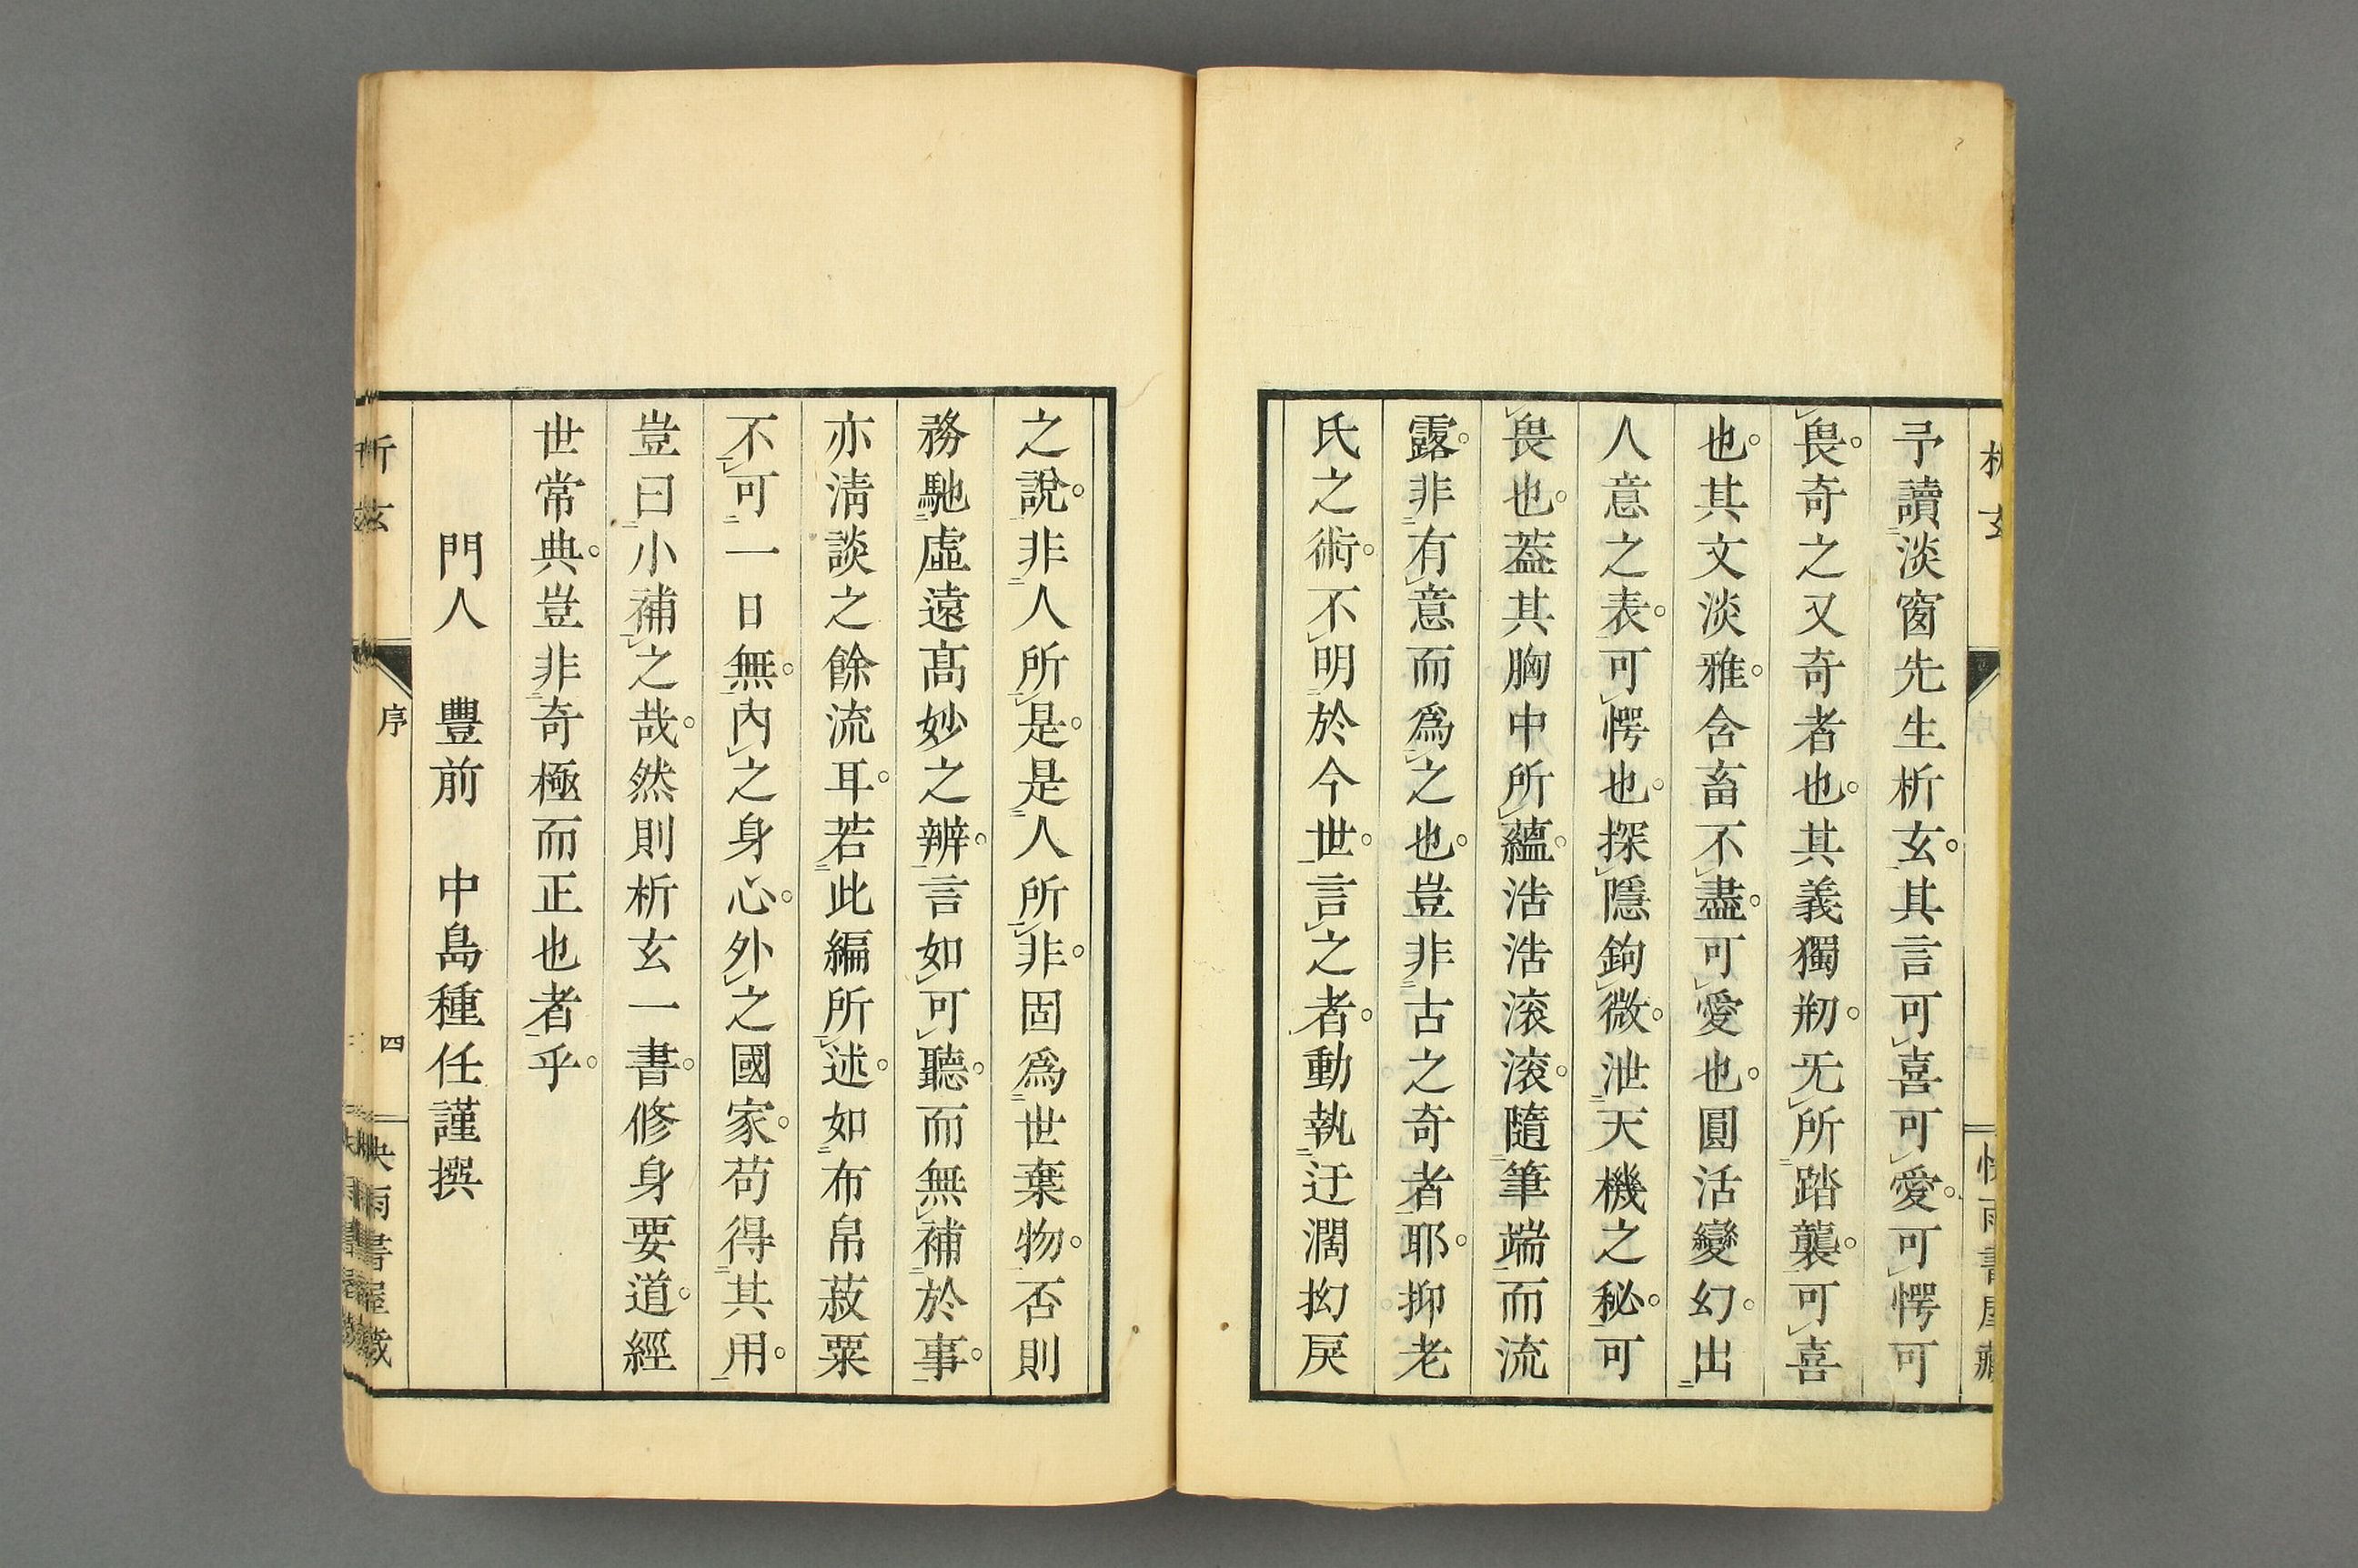 予讀淡窗先生析玄。其言可喜可愛。可愕可
畏。奇之又奇者也。其義獨剏无所踏襲。可喜
也。其文淡雅。含畜不盡。可愛也。圓活變幻。出
人意之表。可愕也。探隱鉤微。泄天機之秘。可
畏也。葢其胸中所蘊。浩浩滚滚。隨筆端而流
露。非有意而爲之也。豈非古之奇者耶。抑老
氏之術。不明於今世。言之者。動執迂濶拗戾
之說。非人所是。是人所非。固爲世棄物。否則
務馳虛遠髙妙之辨。言如可聽。而無補於事。
亦淸談之餘流耳。若此編所述。如布帛菽粟
不可一日無。內之身心。外之國家。苟得其用。
豈曰小補之哉。然則析玄一書。修身要道。經
世常典。豈非奇極而正也者乎。
門人 豐前 中島種任謹撰
析玄
序
四
快雨書屋藏